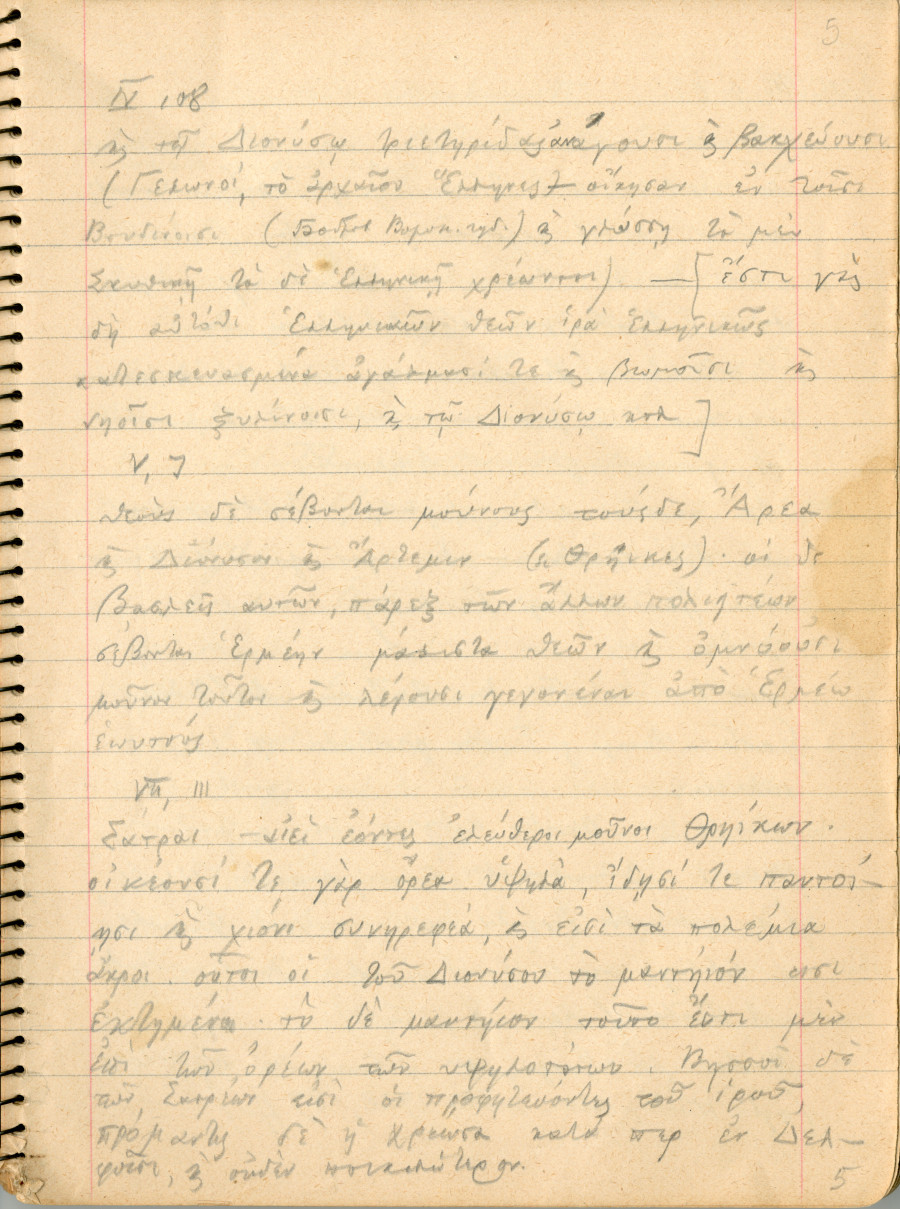 5
IV 108
ϗ τῷ Διονύσῳ τριετηρίδας ἀνάγουσι ϗ βακχεύουσι
(Γελωνοί, τὸ ἀρχαῖον Ἕλληνες) – οἴκησαν ἐν τοῖσι
Βουδίνοισι ( ) ϗ γλώσσῃ τὰ μὲν
Σκυθικῇ τὰ δὲ Ἑλληνικῇ χρέωνται) — [ἔστι γὰρ
δὴ αὐτόθι Ἑλληνικῶν θεῶν ἱρὰ Ἑλληνικῶς
κατεσκευασμένα ἀγάλμασί τε ϗ βωμοῖσι ϗ
νηοῖσι ξυλίνοισι, ϗ τῷ Διονύσῳ κτλ]
V, 7
θεοὺς δὲ σέβονται μούνους τούσδε, Ἄρεα
ϗ Διόνυσον ϗ Ἄρτεμιν (οἱ Θρήικες). οἱ δὲ
βασιλεῖς αυτῶν, πάρεξ τῶν ἄλλων πολιητέων
σέβονται Ἑρμέην μάλιστα θεῶν ϗ ὀμνύουσι
μοῦνον τοῦτον ϗ λέγουσι γεγονέναι ἀπὸ Ἑρμέω
ἑωυτούς
VII, 111
Σάτραι – αἰεὶ ἐόντες ἐλεύθεροι μοῦνοι Θρηίκων.
οἰκέουσί τε γὰρ ὄρεα ὑψηλὰ, ἴδησί τε παντοί–
ησι ϗ χιόνι συνηρεφέα, ϗ εἰσὶ τὰ πολέμια
ἄκροι. οὗτοι οἱ τοῦ Διονύσου τὸ μαντήιόν εισι
ἐκτημένοι. τὸ δὲ μαντήιον τοῦτο ἔστι μὲν
ἐπὶ τῶν ὀρέων τῶν υψηλοτάτων. Βησσοὶ δὲ
τῶν Σατρέων εἰσὶ οἱ προφητεύοντες τοῦ ἱροῦ,
πρόμαντις δὲ ἡ χρέωσα κατά περ ἐν Δελ–
φοῖσι, ϗ οὐδὲν ποικιλώτερον.
5